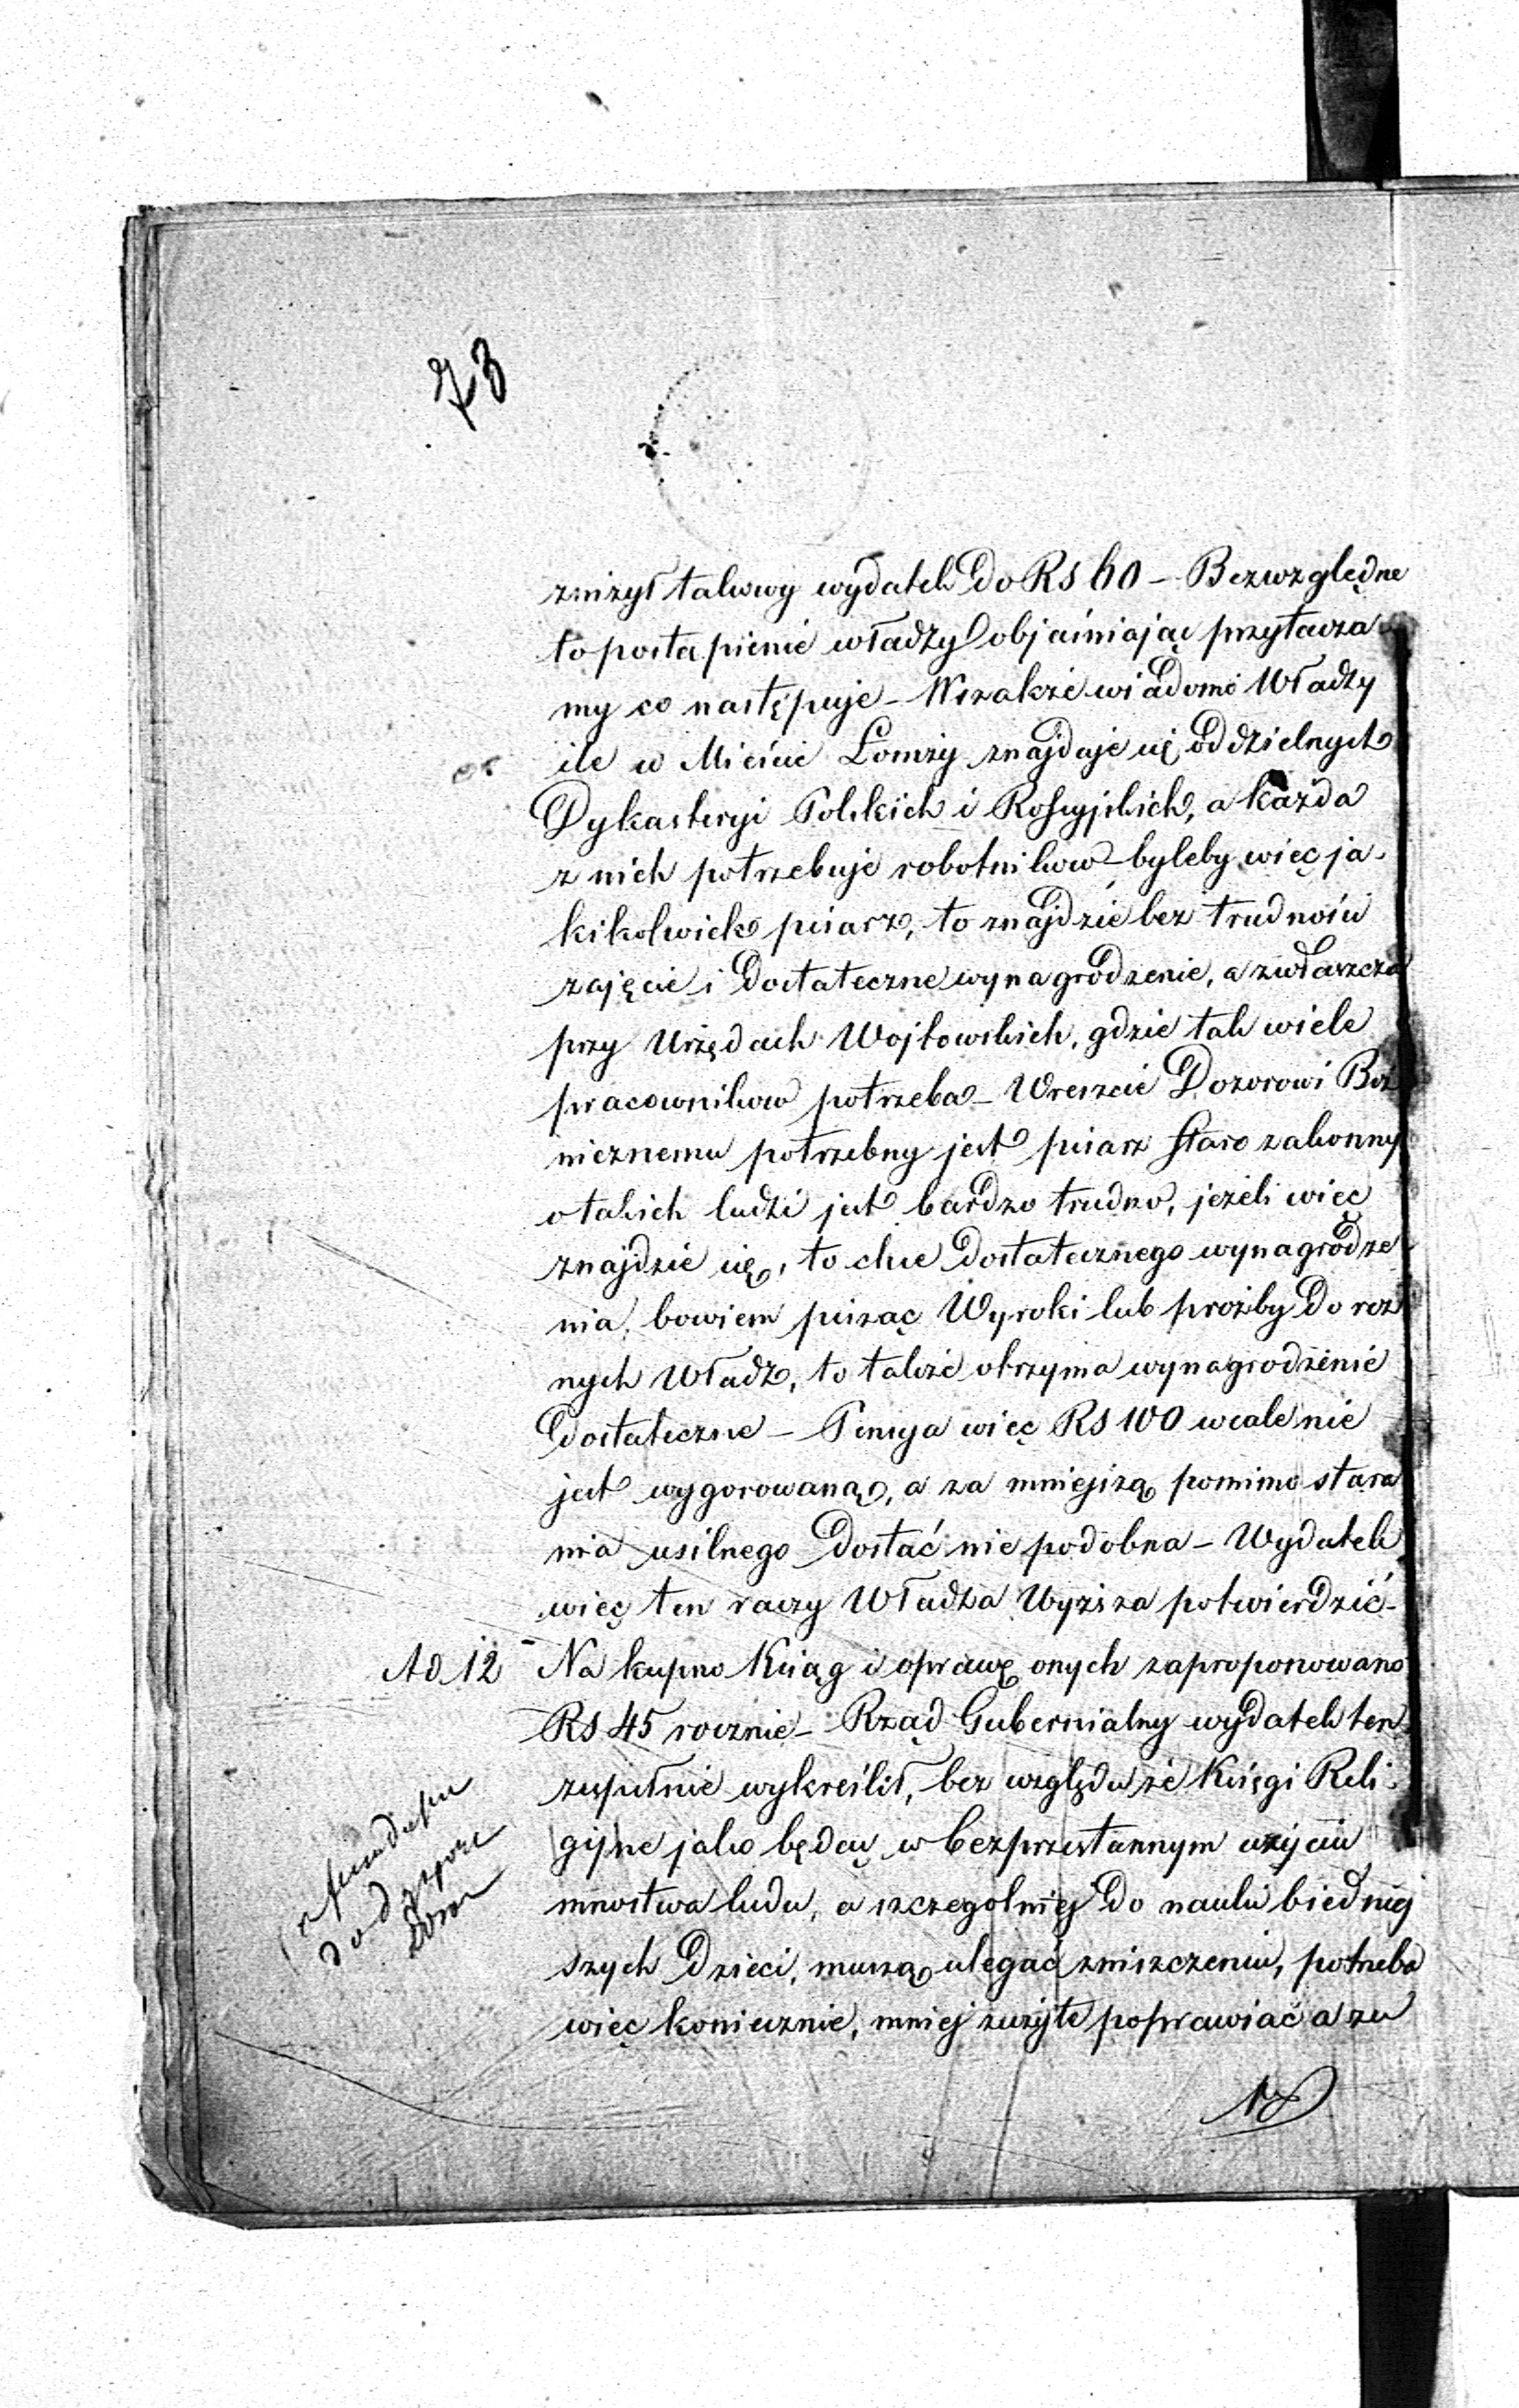 73
zniżył takowy wydatek do RS 60 – Bezwzględne
to postąpienie władzy objaśniając przytacza
my co następuje – Wszakże wiadomo Władzy
ile w Mieście Łomży znajduje się oddzielnych
Dykasteryi Polskich i Rossyjskich, a każda
z nich potrzebuje robotników – byleby więc ja-
kikolwiek pisarz, to znajdzie bez trudności
zajęcie i dostateczne wynagrodzenie, a zwłaszcza
przy Urzędach Wojtowskich, gdzie tak wiele
pracowników potrzeba – Wreszcie Dozorowi Boż
nicznemu potrzebny jest pisarz Starozakonny
o takich ludzi jest bardzo trudno, jeżeli więc
znajdzie się, to chce dostatecznego wynagrodze
nia, bowiem pisząc Wyroki lub prożby do roż
nych Władz, to także otrzyma wynagrodzenie
dostateczne – Pensya więc RS 100 wcale nie
jest wygorowaną, a za mniejszą pomimo stara
nia usilnego dostać nie podobna – Wydatek
więc ten raczy Władza Wyższa potwierdzić –
Ad 12 Na kupno Ksiąg i oprawę onych zaproponowano
RS 45 rocznie – Rząd Gubernialny wydatek ten
zupełnie wykreślił, bez względu że Księgi Reli-
gijne jako będąc w bezprzestannym użyciu
mnostwa ludu, a szczegolniej do nauki biedniej
szych Dzieci, muszą ulegać zniszczeniu, potrzeba
więc koniecznie, mniej zużyte poprawiać a zu